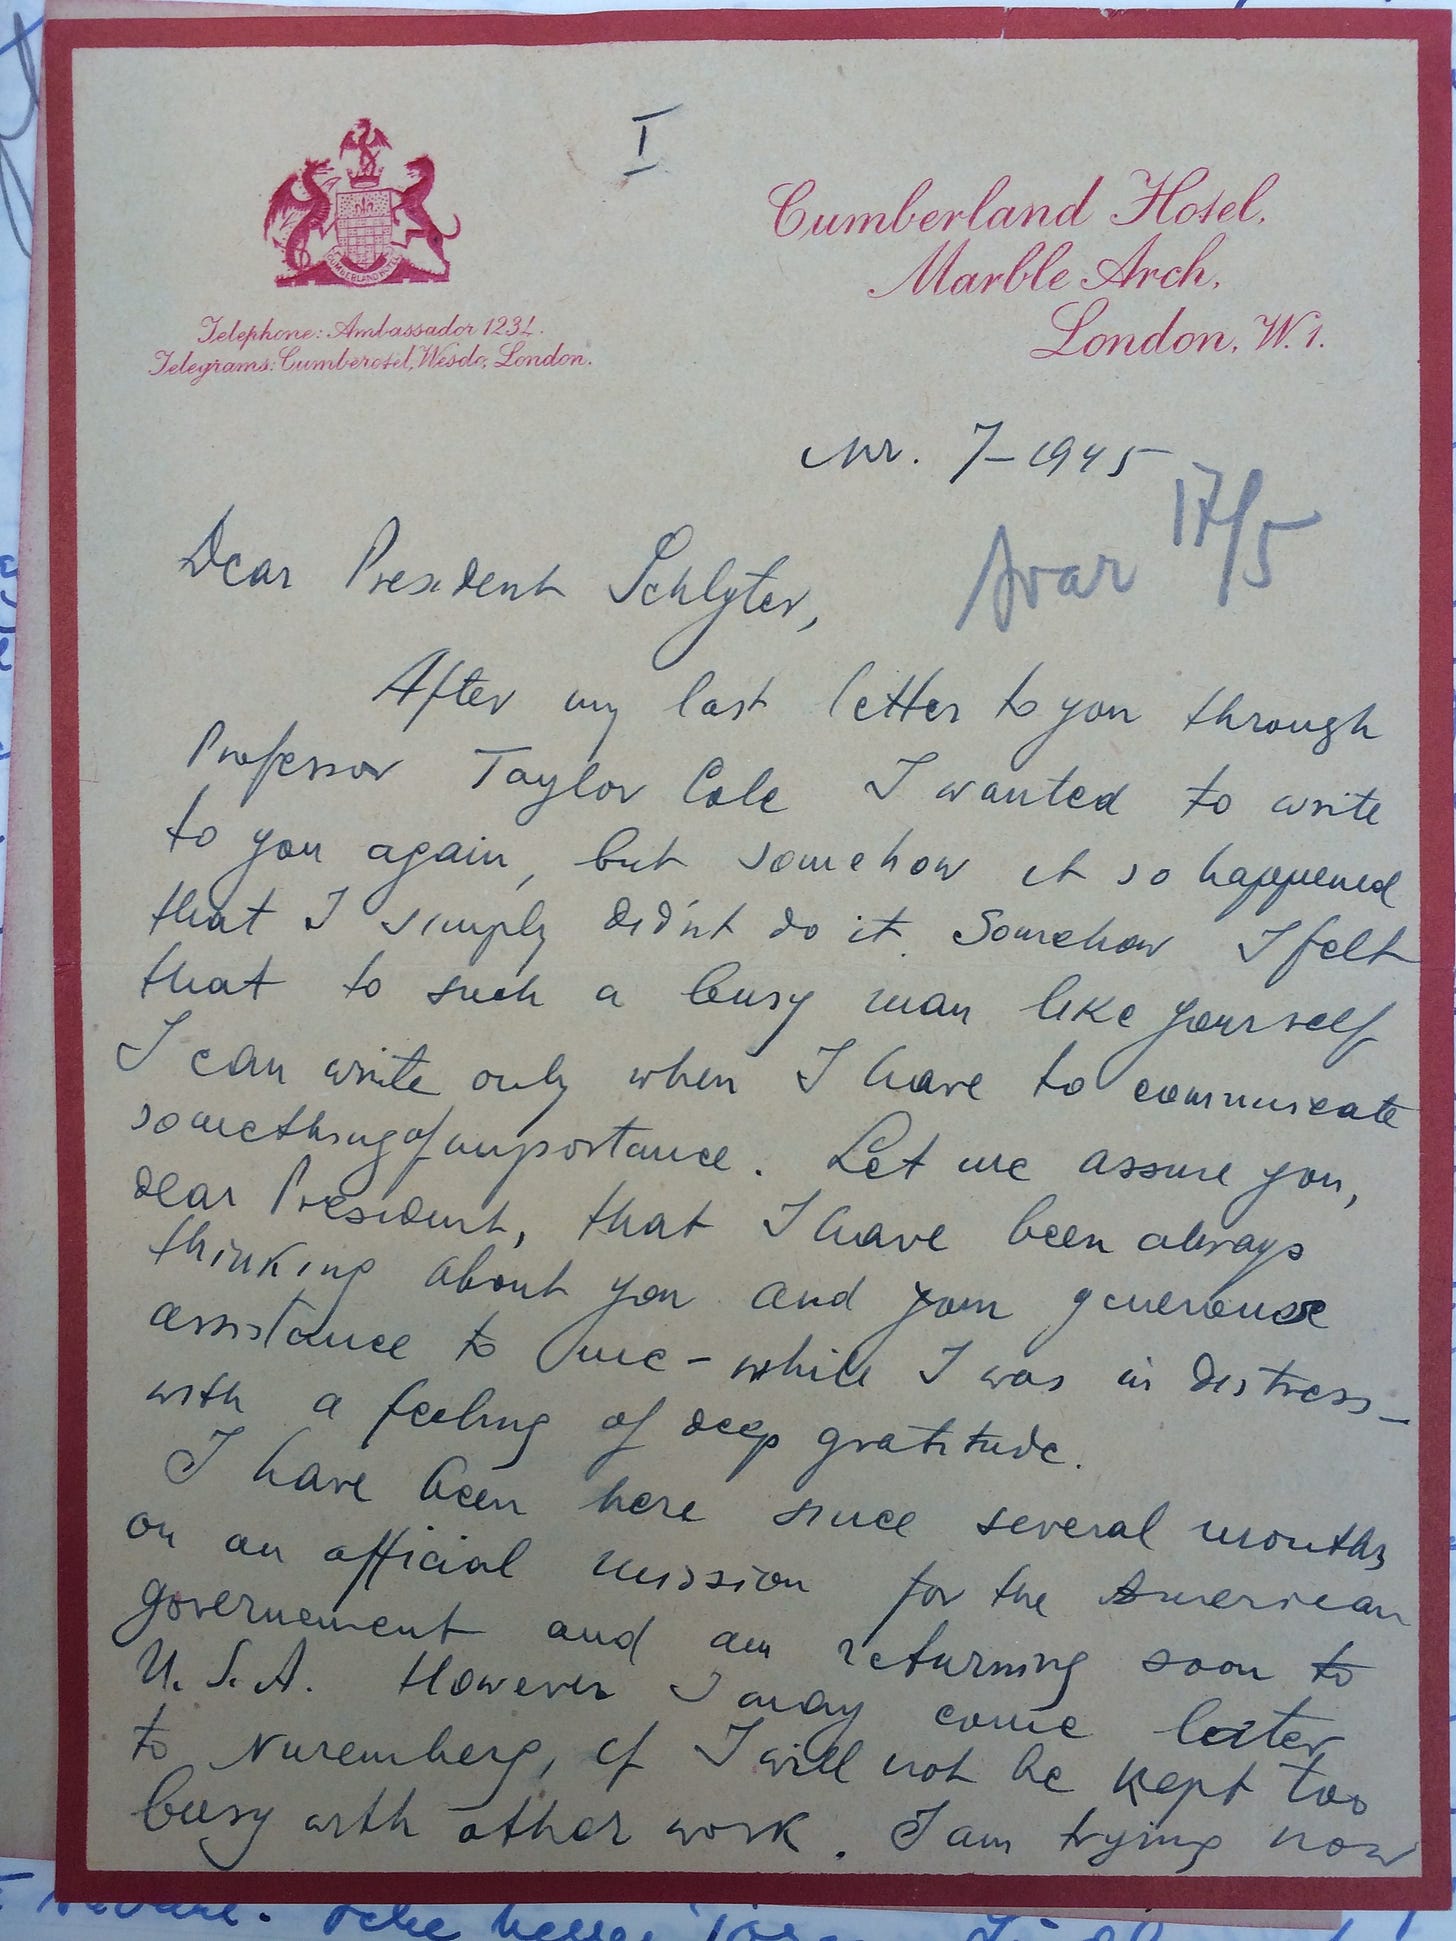 I
CUMBERLAND HOTEL
Cumberland Hotel,
Marble Arch,
London, W.1.
Telephone: Ambassador 1234.
Telegrams: Cumberotel, Wesdo, London.
Nr. 7-1945
Svar 17/5
Dear President Schlyter,
After my last letter to you through
Professor Taylor Cole I wanted to write
to you again, but somehow it so happened
that I simply did'nt do it. Somehow I felt
that to such a busy man like yourself
I can write only when I have to communicate
something of importance. Let me assure you,
dear President, that I have been always
thinking about you and your generouse
assistance to me - while I was in distress -
with a feeling of deep gratitude.
I have been here since several months
on an official mission for the American
governement and am returning soon to
U.S.A. However I may come later
to Nuremberg, if I will not be kept too
busy with other work. I am trying now